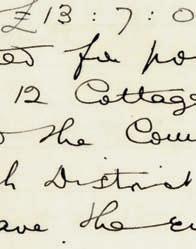 £13 : 7 : 0
ed for po
12 Cottage
the Cou
h District
ave the e